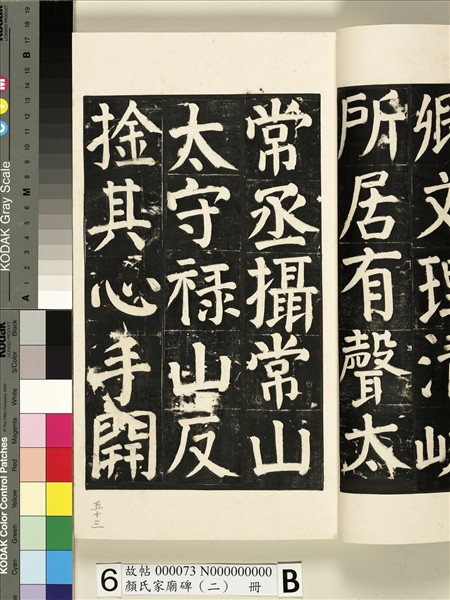 卿文理清峻
所居有聲太
常丞攝常山
太守禄山反
捦其心手開
五十三
6
故帖 000073 N000000000
顏氏家廟碑（二） 冊
B
KODAK Gray Scale
C
M
A 1 2 3 4 5 6 M 8 9 10 11 12 13 14 15 B 17 18 19
Kodak
KODAK Color Control Patches
Cyan Green Yellow Red Magenta White 3/Color Black